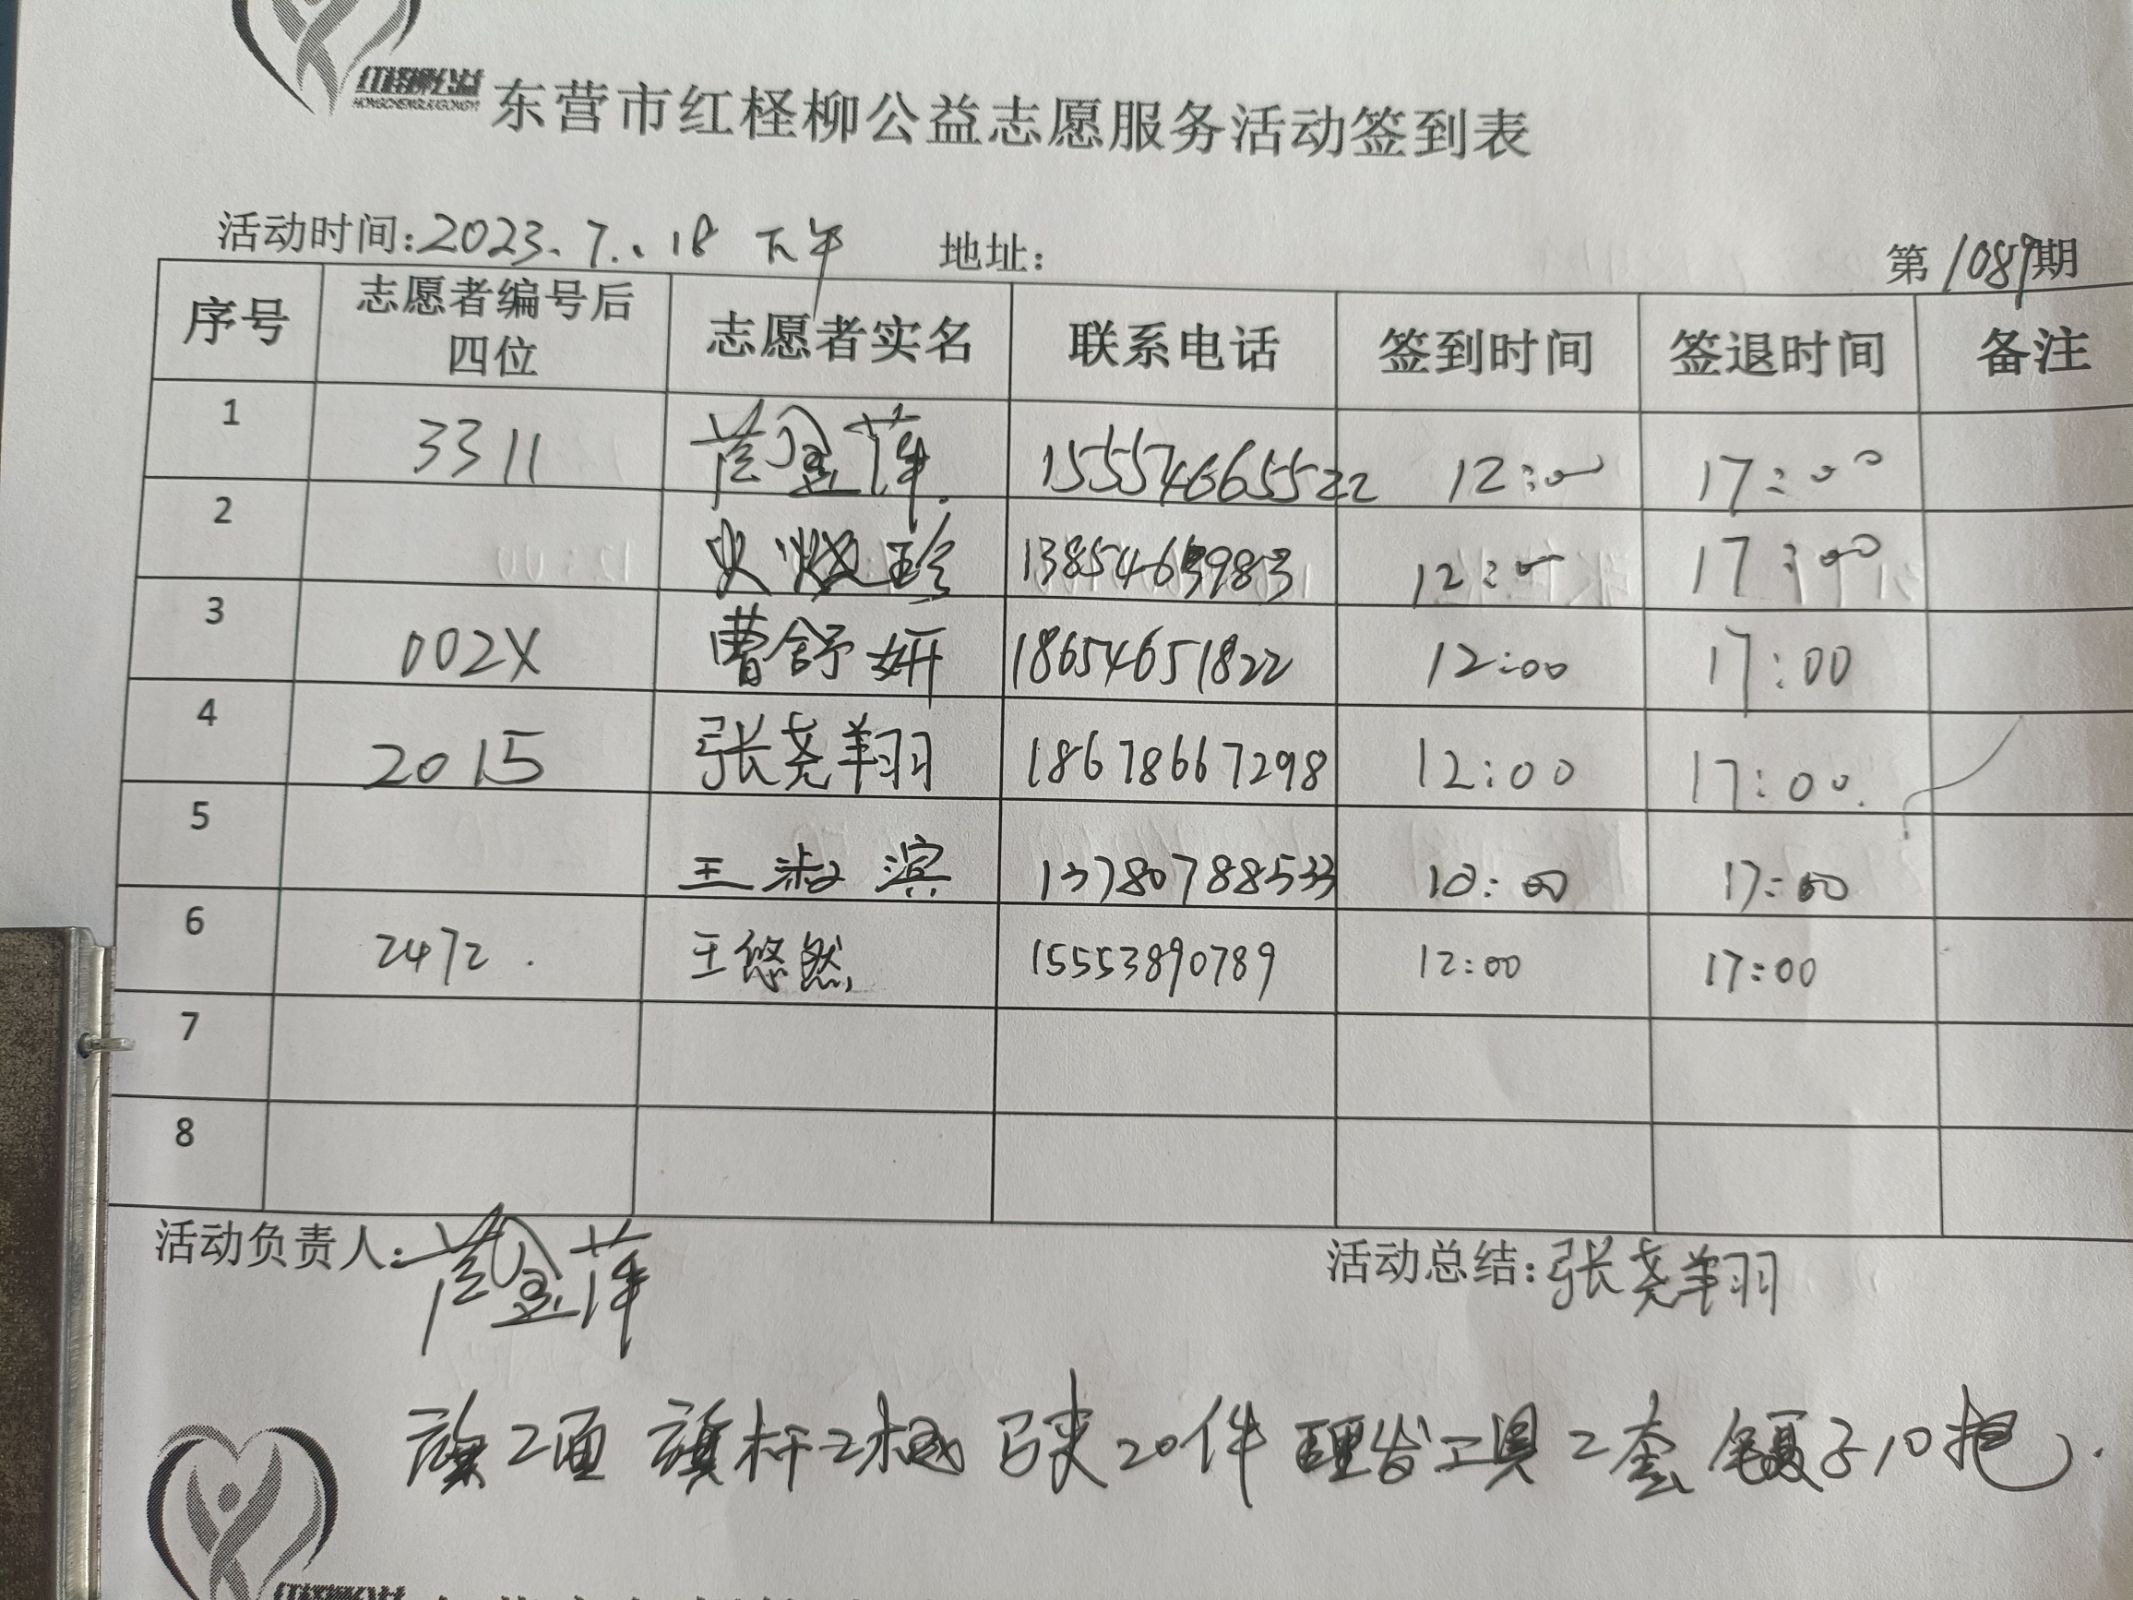 红柽柳公益
HONGCHENGLIUGONGYI
东营市红柽柳公益志愿服务活动签到表
活动时间:2023.7.18 下午 地址: 第1089期
序号 志愿者编号后四位 志愿者实名 联系电话 签到时间 签退时间 备注
1 3311 15554665522 12:00 17:00
2 1385463983 12:00 17:00
3 002X 曹舒妍 18654651822 12:00 17:00
4 2015 张尧翔 18678667298 12:00 17:00.
5 王淑滨 13780788533 17:00
6 2472. 王悠然 15553890789 12:00 17:00
7
8
活动负责人: 活动总结:张尧翔
旗2面 旗杆2根 马夹20件 理发工具2套 10把.
红柽柳公益